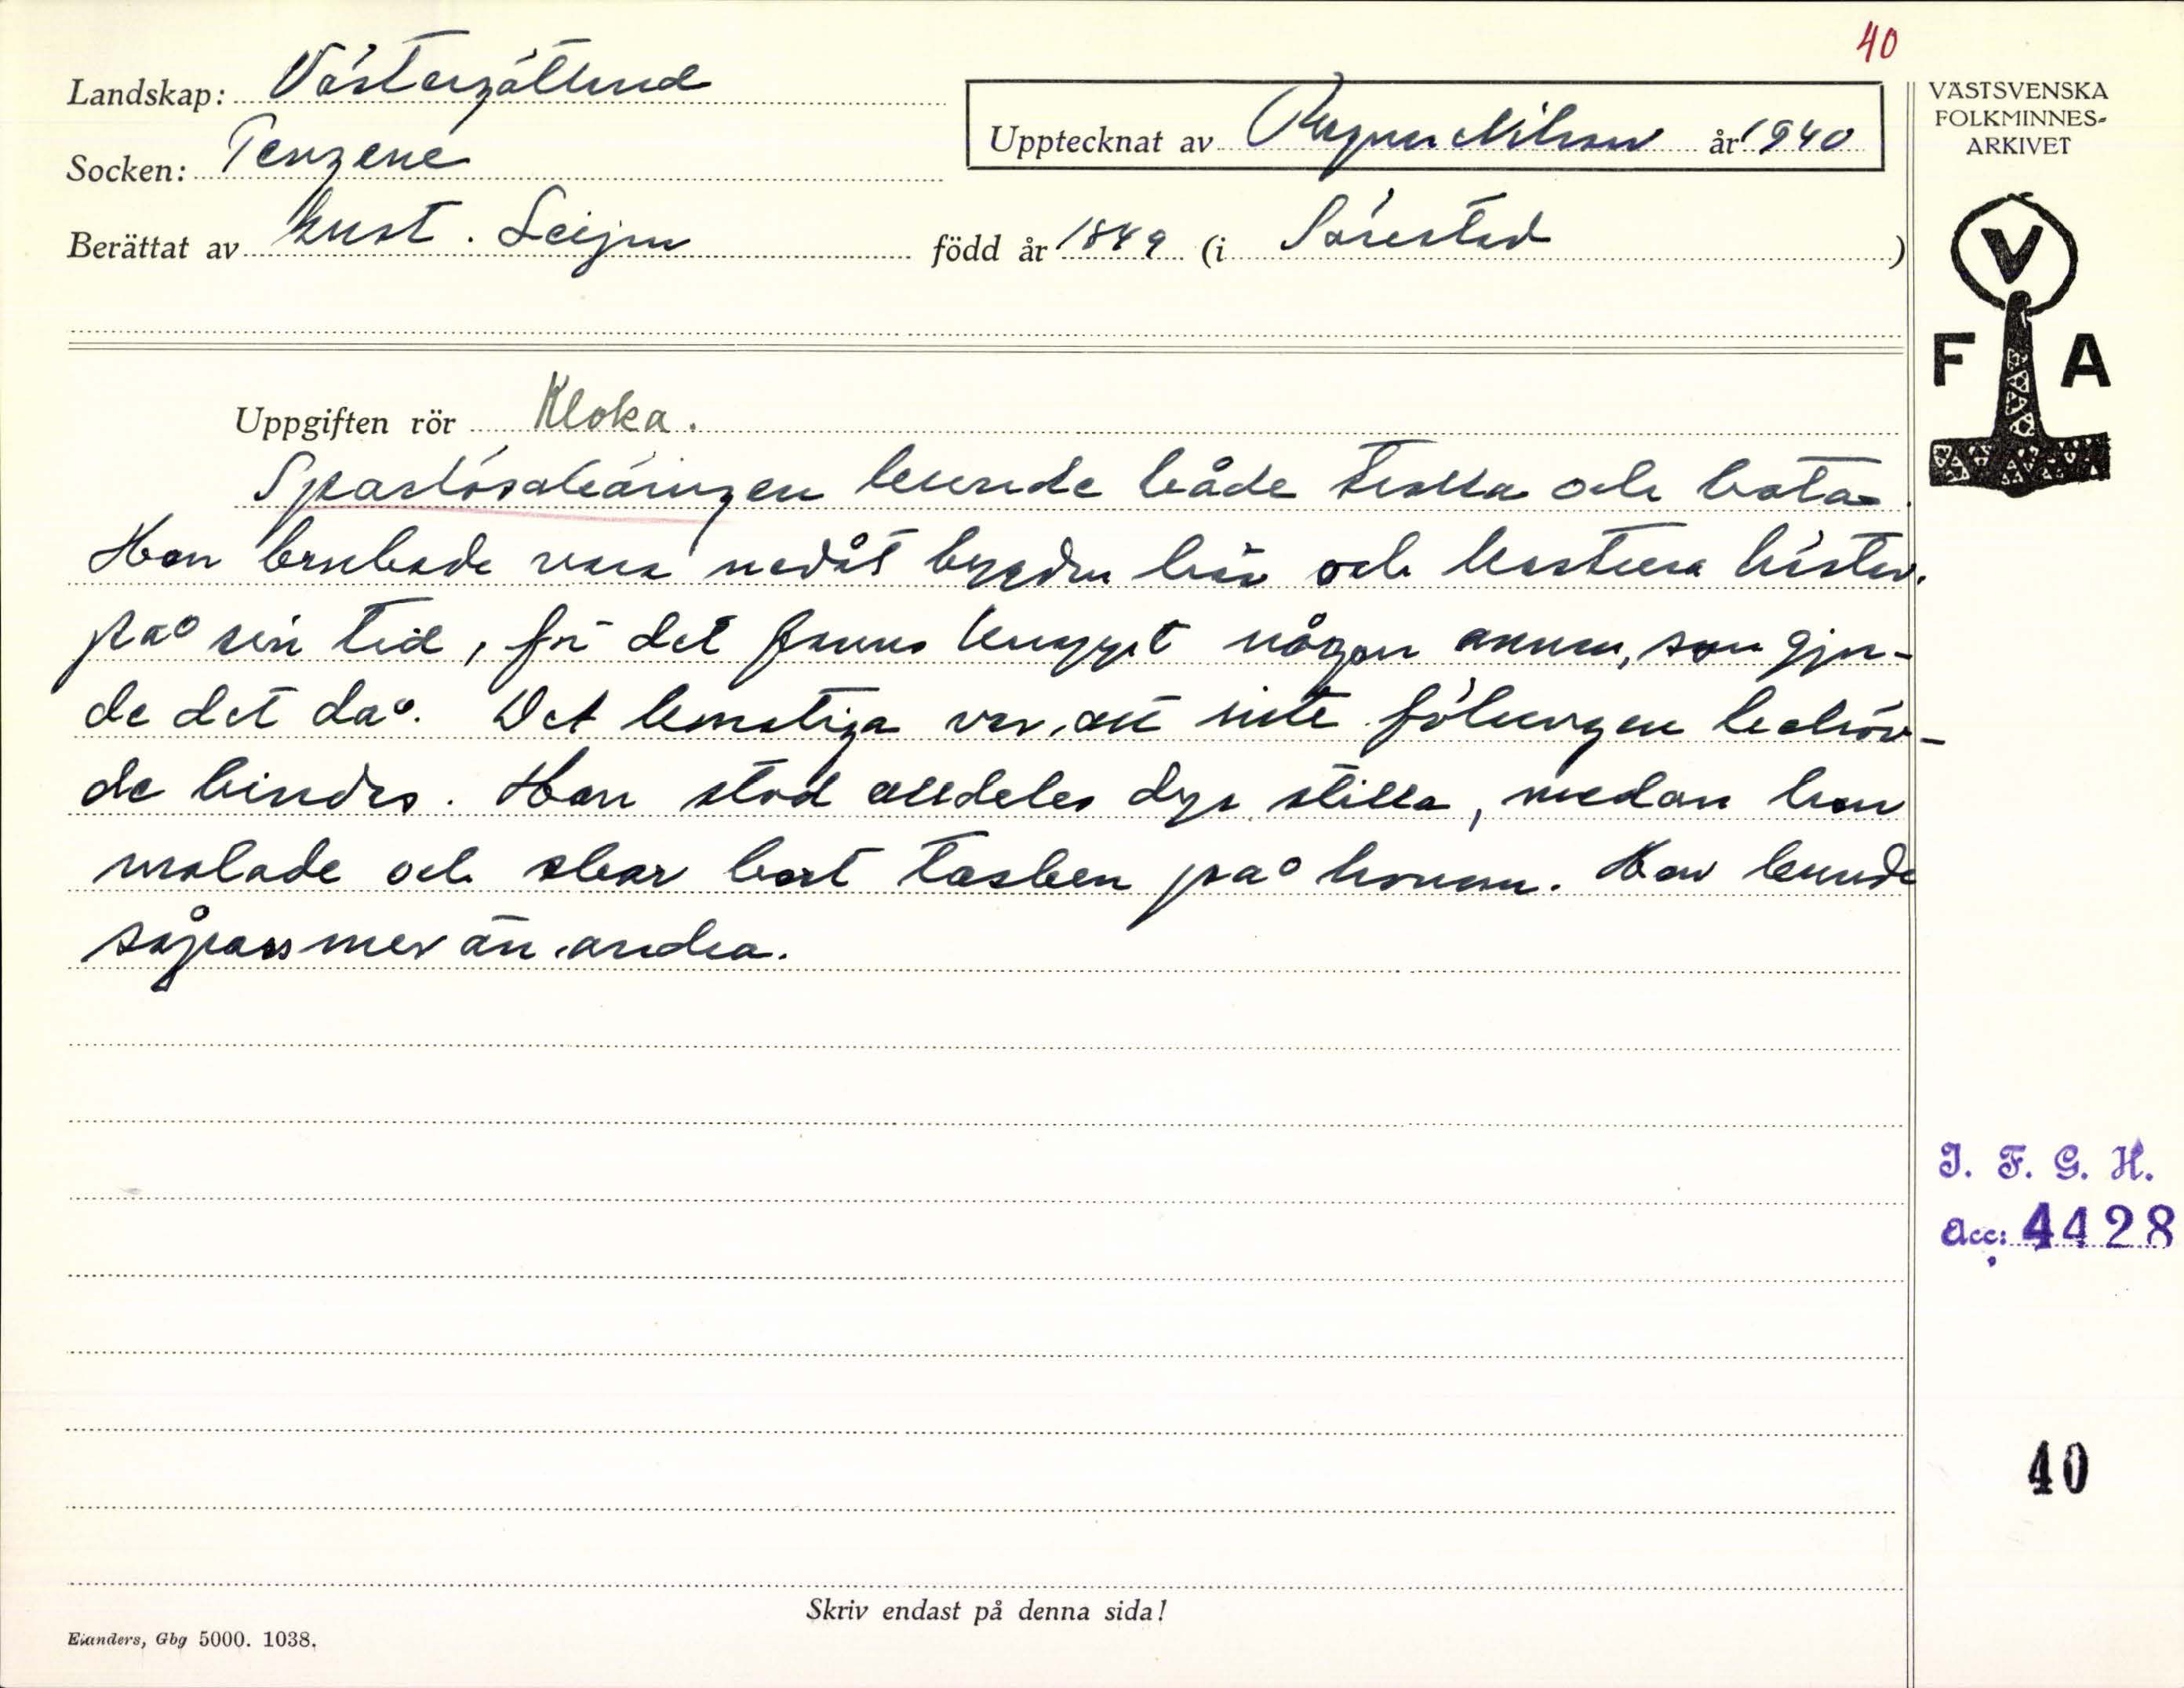 40
Landskap: Västergötland
Socken: Tengene
Upptecknat av Ragnar Nilsson år 1940
Berättat av Gust. Leijon född år 1849 (i Särestad)
Uppgiften rör Kloka.
Sparlösakäringen kunde både trolla och bota.
Han brukade vara nedåt bygden här och kastrera hästar
på sin tid, för det fanns knappt någon annan, som gjor-
de det då. Det konstiga var, att inte fölungen behöv-
de bindas. Han stod alldeles dys stilla, medan han
malade och skar bort tasken på honom. Han kunde
såpass mer än andra.
Skriv endast på denna sida!
Elanders, Gbg 5000. 1038.
VÄSTSVENSKA
FOLKMINNES-
ARKIVET
V
F A
I. F. G. H.
Acc: 4428
40